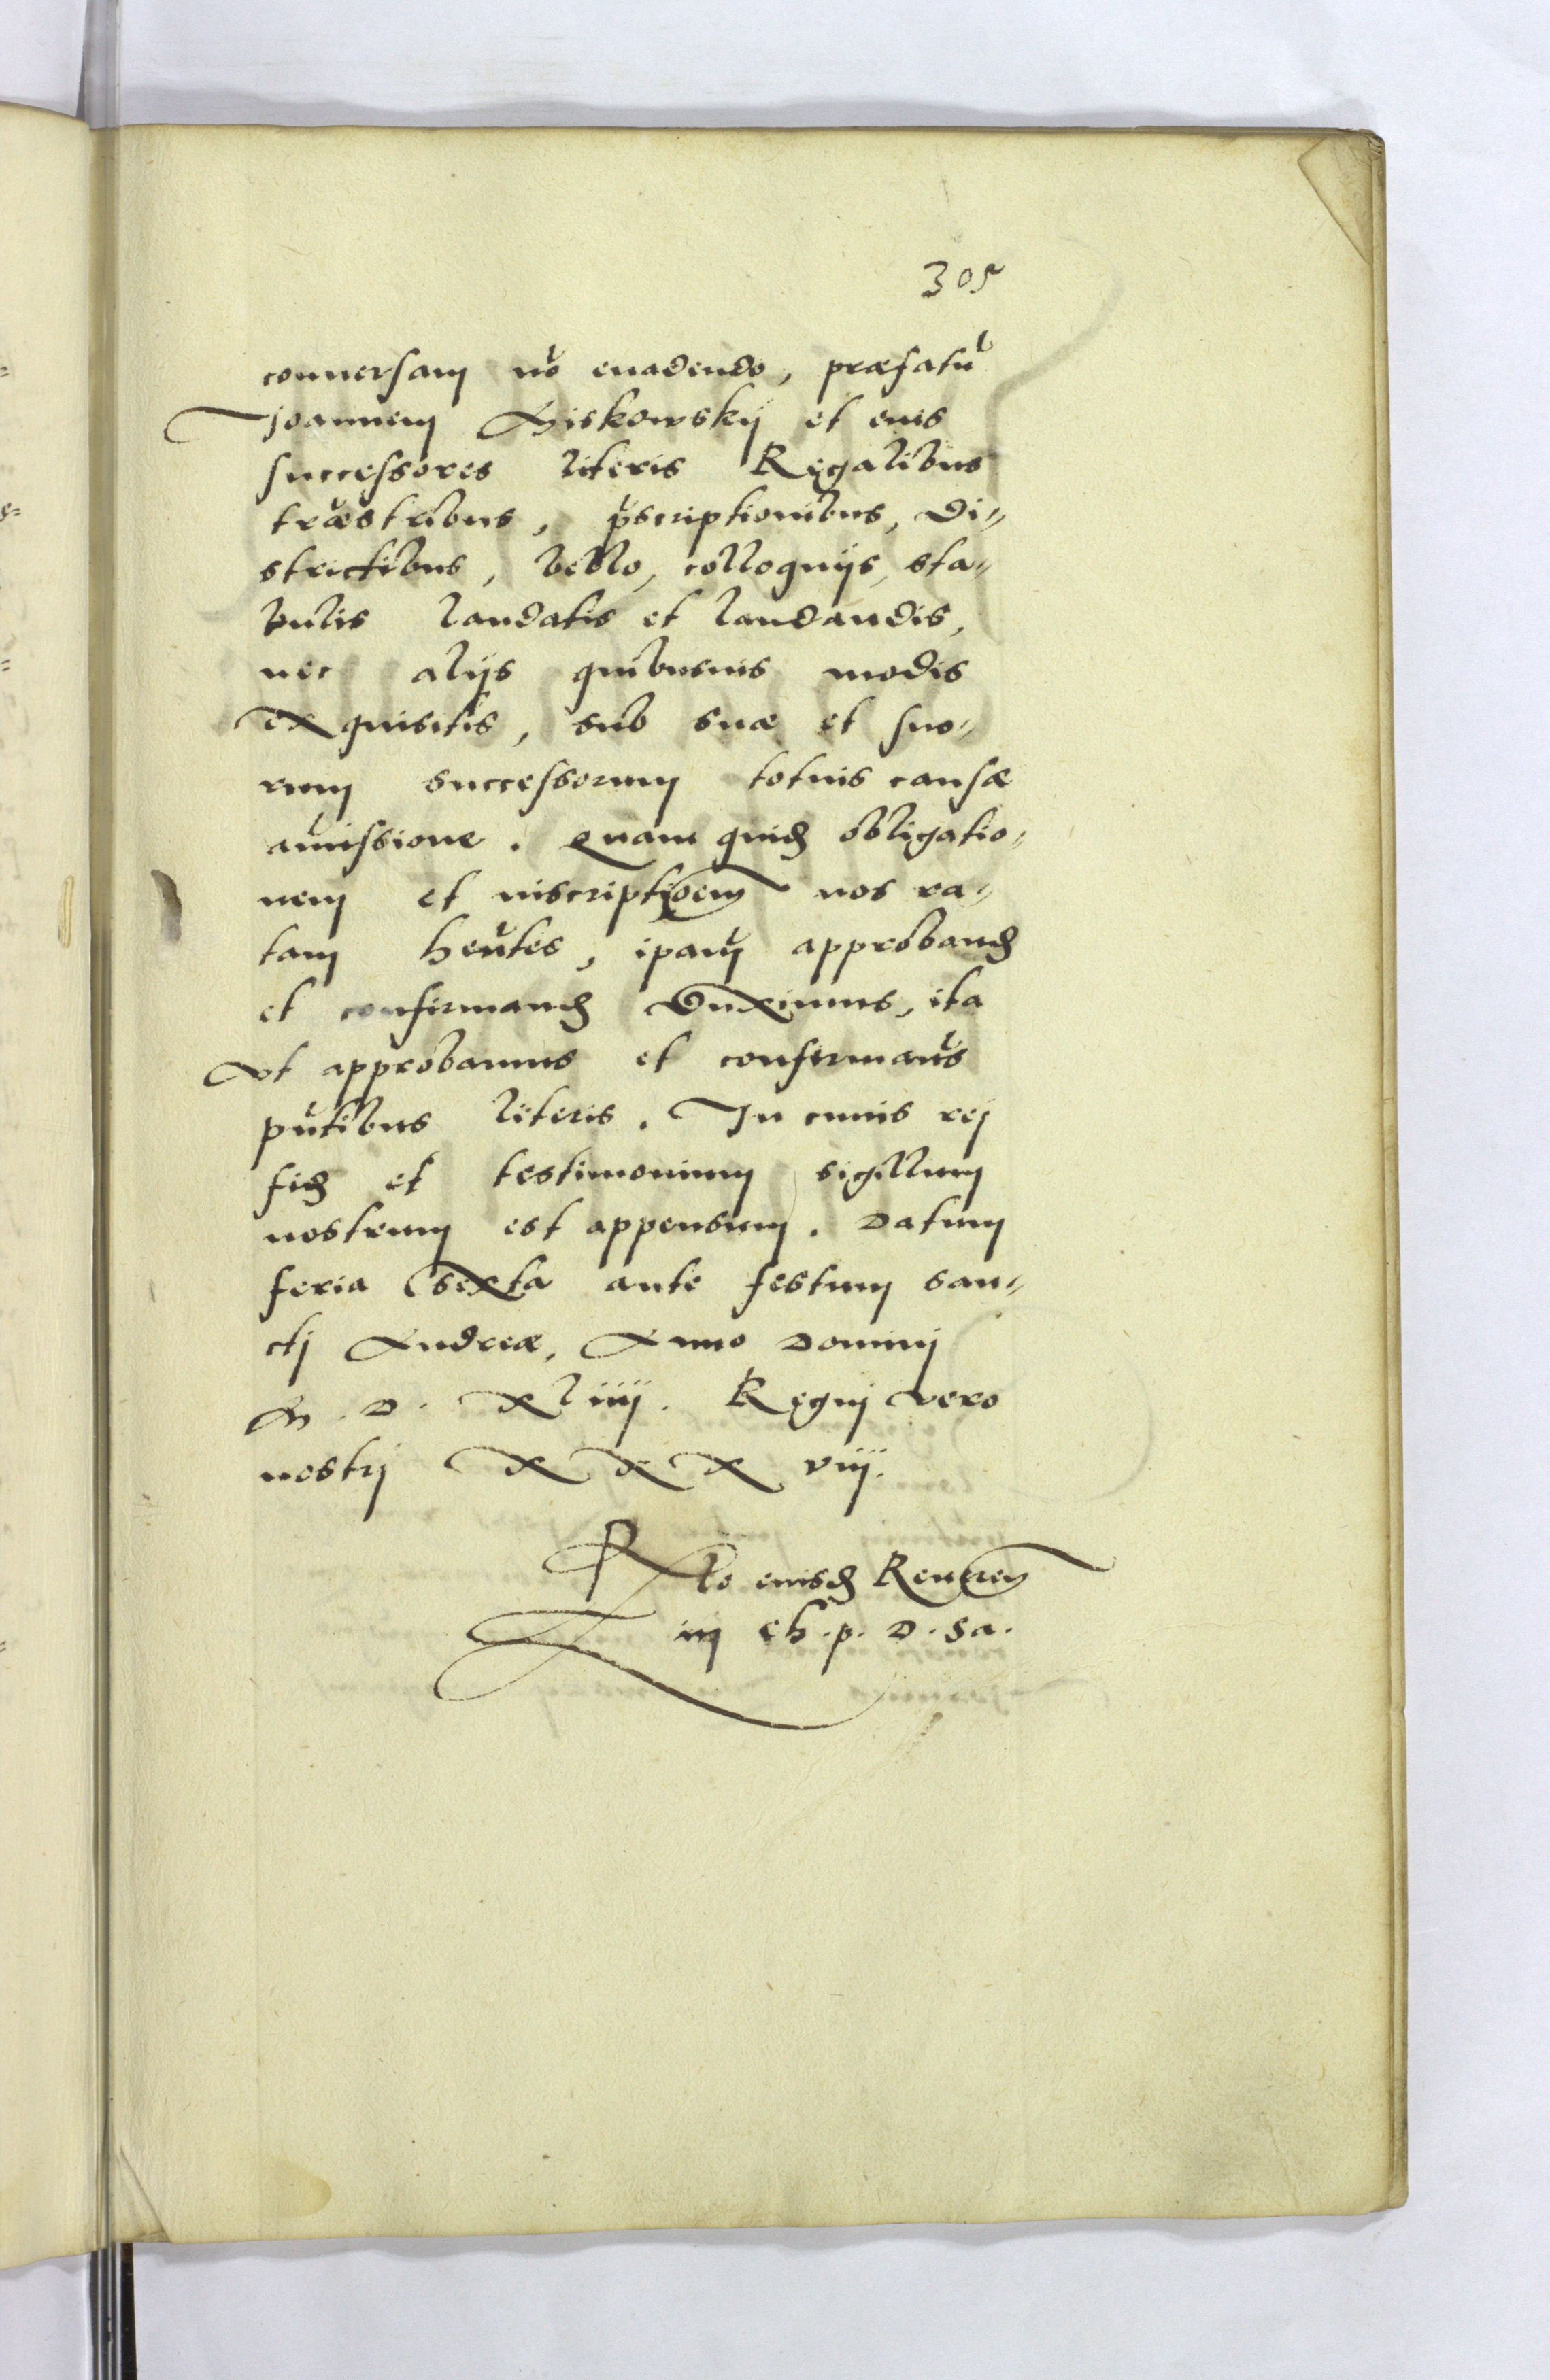 305
conuersam nō euadendo, præfatū
Joannem Miskowskij et eius
successores literis Regalibus
træstribus, p̄scriptionibus, di„
strictibus, bello, colloquijs, sta„
tutis laudatis et laudandis,
nec alijs quibusuis modis
exquisitis, sub suæ et suo„
rum successorum totius causæ
amissione. Quam quid obligatio„
nem et inscriptioem nos ra„
tam hentes, ipam approband
et confirmand duximus, ita
vt approbamus et confirmaūs
pn̄tibus literis. In cuius rej
fid et testimonium sigillum
nostrum est appensum. Datum
feria sexta ante festum san„
ctj Andreæ, Anno Dominj
M. D. xliiij. Regnj vero
nostrj X X X viij.
Rlo eiusd Reueren
in Ch. p. D. Sa.